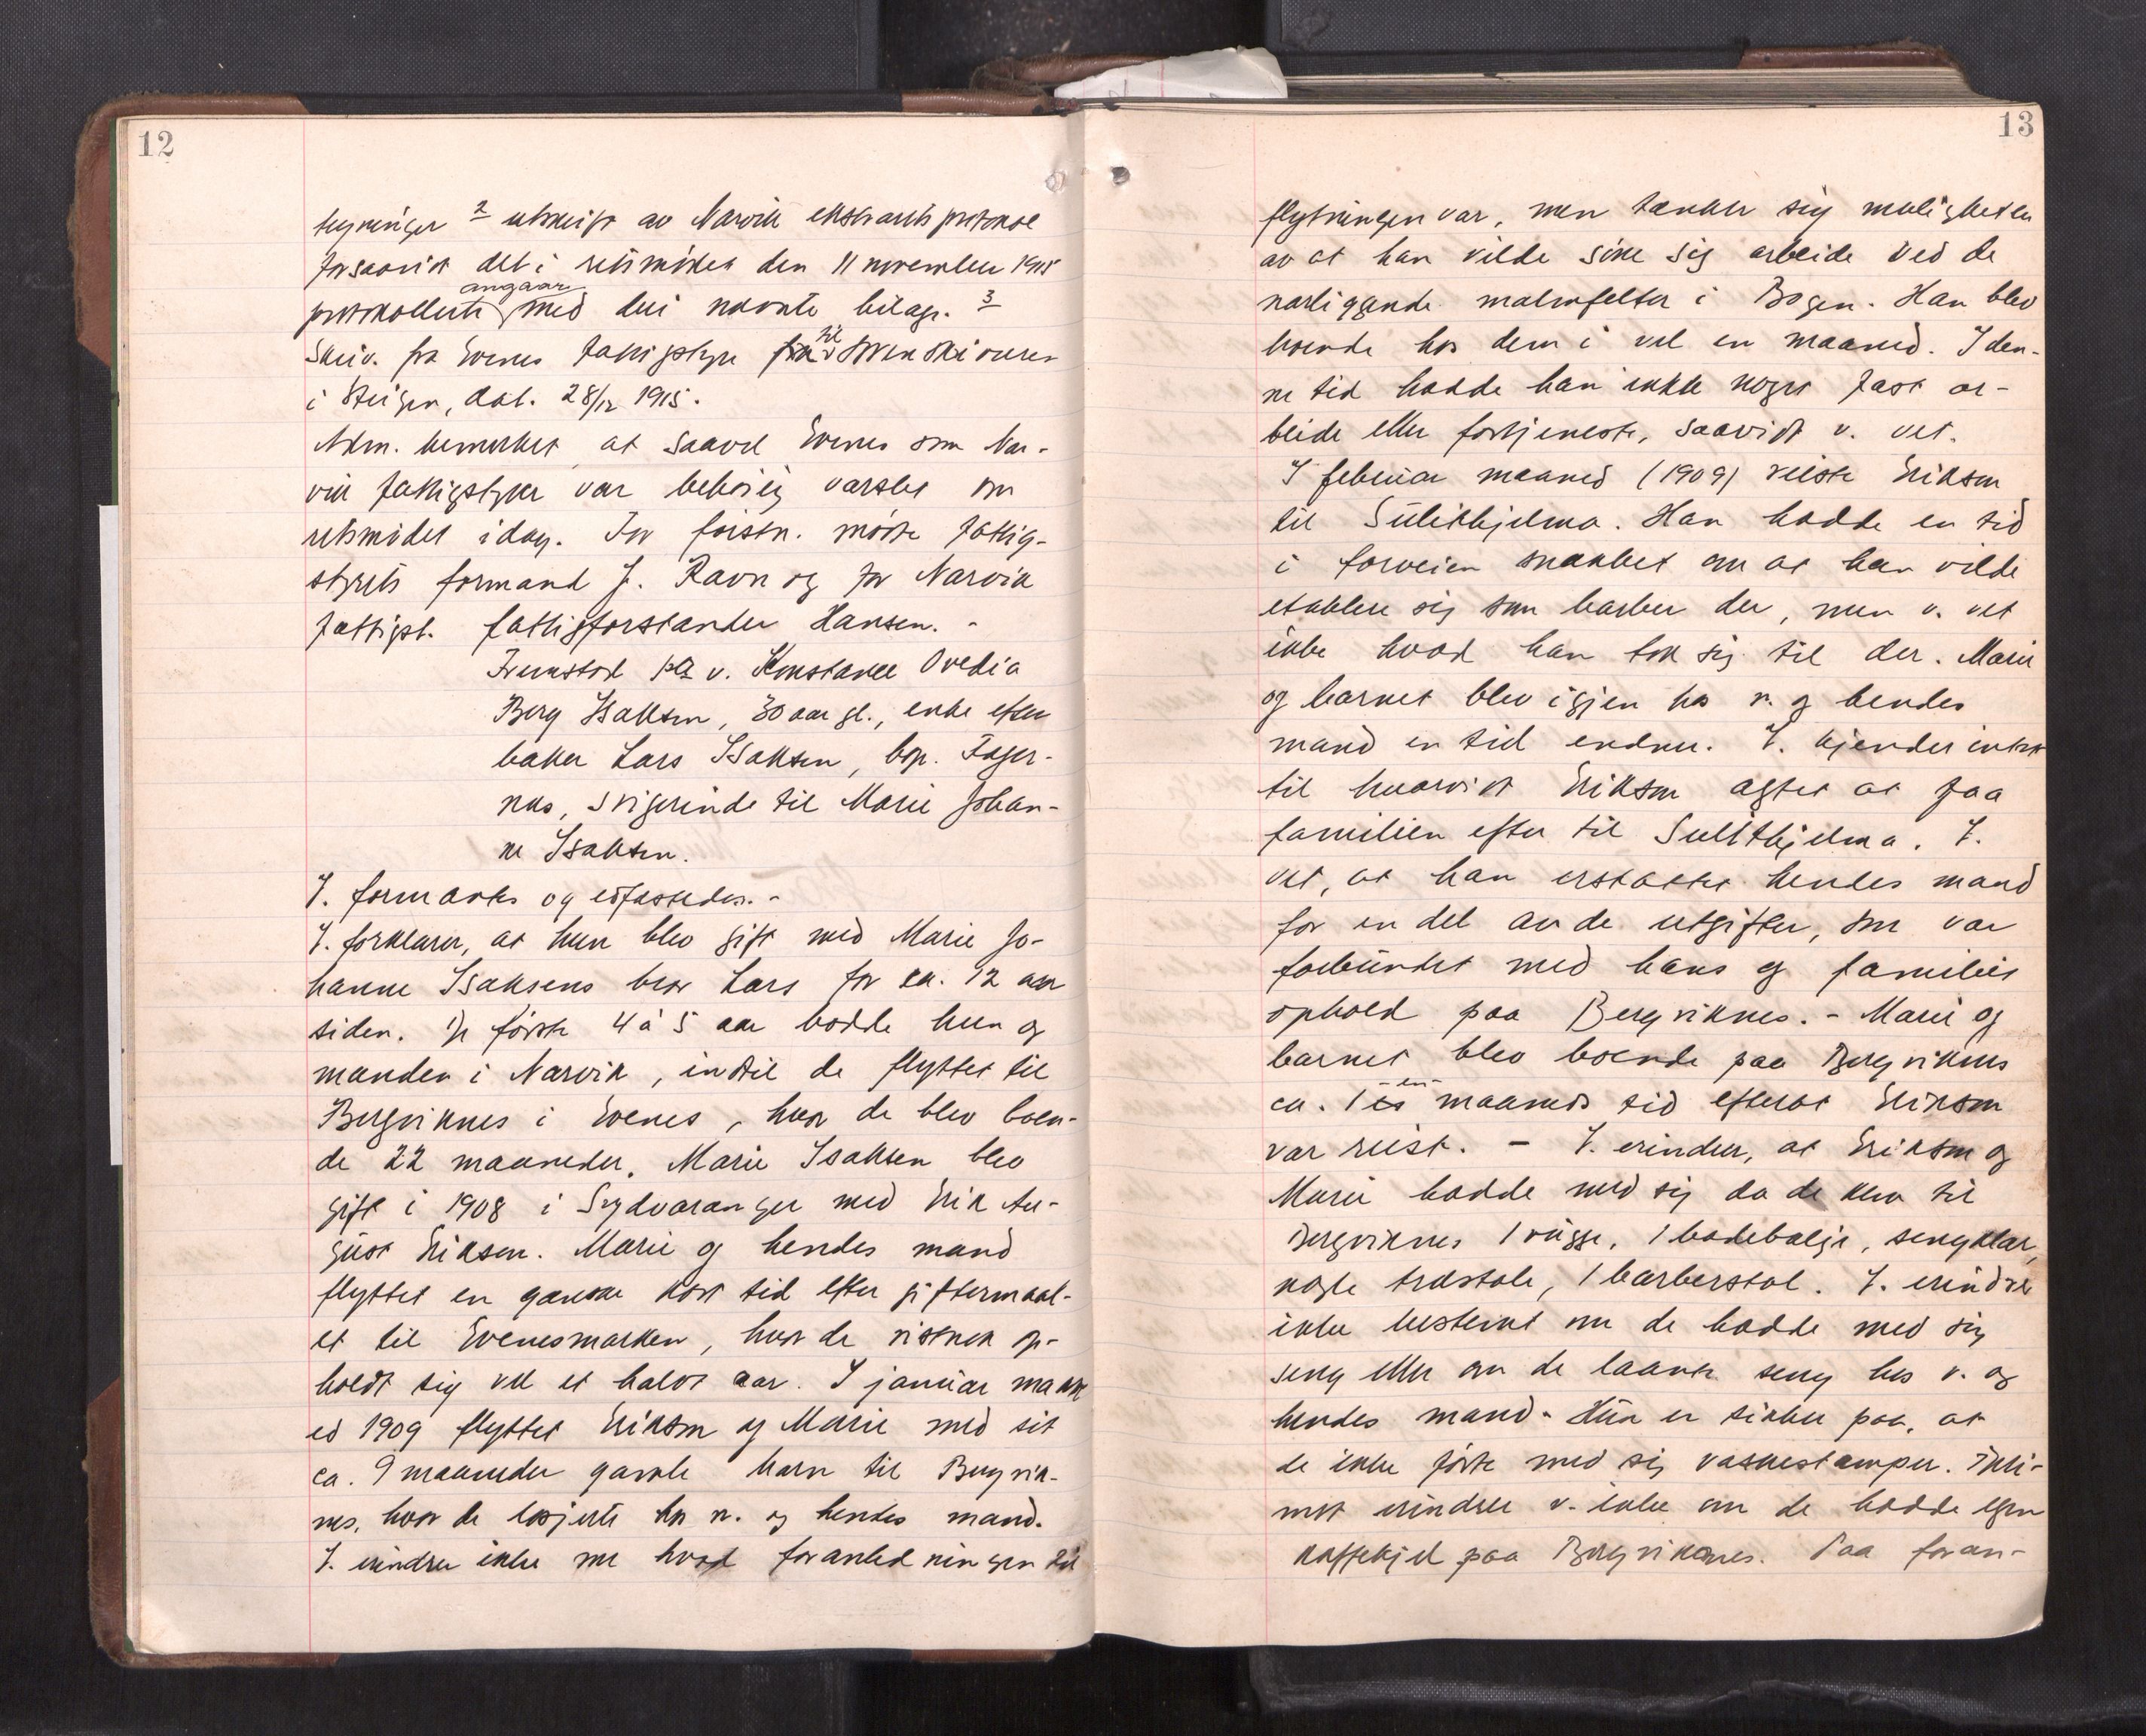 12
tegninger 2 utskrift av Narvik ekstraretsprotokol
forsaavidt det i retsmødet den 11 november 1915
angaar
protokollerte med deri nævnte bilage. 3
Skriv. fra Evenes fattigstyre til sorenskriveren
i Steigen, dat. 28/12 1915.
Adm. bemerket, at saavel Evenes som Nar-
vik fattigstyrer var behørig varslet om
retsmødet idag. For førstn. møtte fattig-
styrets formand J. Ravn og for Narvik
fattigst. fattigforstander Hansen. -
Fremstod v. Konstance Ovedia
Berg Isaksen, 30 aar gl., enke efter
baker Lars Isaksen, bop. Fager-
nes, svigerinde til Marie Johan-
ne Isaksen.
V. formantes og edfæstedes. -
V. forklarer, at hun blev gift med Marie Jo-
hanne Isaksens bror Lars for ca. 12 aar
siden. De første 4 à 5 aar bodde hun og
manden i Narvik, indtil de flyttet til
Bergviknes i Evenes, hvor de blev boen-
de 22 maaneder. Marie Isaksen blev
gift i 1908 i Sydvaranger med Erik Au-
gust Eriksen. Marie og hendes mand
flyttet en ganske kort tid efter giftermaal-
et til Evenesmarken, hvor de vistnok op-
holdt sig vel et halvt aar. I januar maan
ed 1909 flyttet Eriksen og Marie med sit
ca. 9 maaneder gamle barn til Bergvik-
nes, hvor de losjerte hos v. og hendes mand.
V. erindrer ikke nu hvad foranledningen til
13
flytningen var, men tænker sig muligheten
av at han vilde søke sig arbeide ved de
nærliggende malmfelter i Bogen. Han blev
boende hos dem i vel en maaned. I den-
ne tid hadde han ikke noget fast ar-
beide eller fortjeneste, saavidt v. vet.
I februar maaned (1909) reiste Eriksen
til Sulitjelma. Han hadde en tid
i forveien snakket om at han vilde
etablere sig som barber der, men v. vet
ikke hvad han tok sig til der. Marie
og barnet blev igjen hos v. og hendes
mand en tid endnu. V. kjender intet
til hvorvidt Eriksen agtet at faa
familien efter til Sulithjelma. V.
vet, at han erstattet hendes mand
for en del av de utgifter, som var
forbundet med hans og familiens
ophold paa Bergviknes. - Marie og
barnet blev boende paa Bergviknes
-en-
ca. 1 maaneds tid efterat Eriksen
var reist. - V. erindrer, at Eriksen og
Marie hadde med sig da de kom til
Bergviknes 1 vugge, 1 badebalje, sengklær,
nogle træstole, 1 barberstol. V. erindrer
ikke bestemt om de hadde med sig
seng eller om de laante seng hos v. og
hendes mand. Hun er sikker paa, at
de ikke førte med sig vaskestamper. Ikke-
mot erindrer v. ikke om de hadde egen
kaffekjel paa Bergviknes. Paa foran-